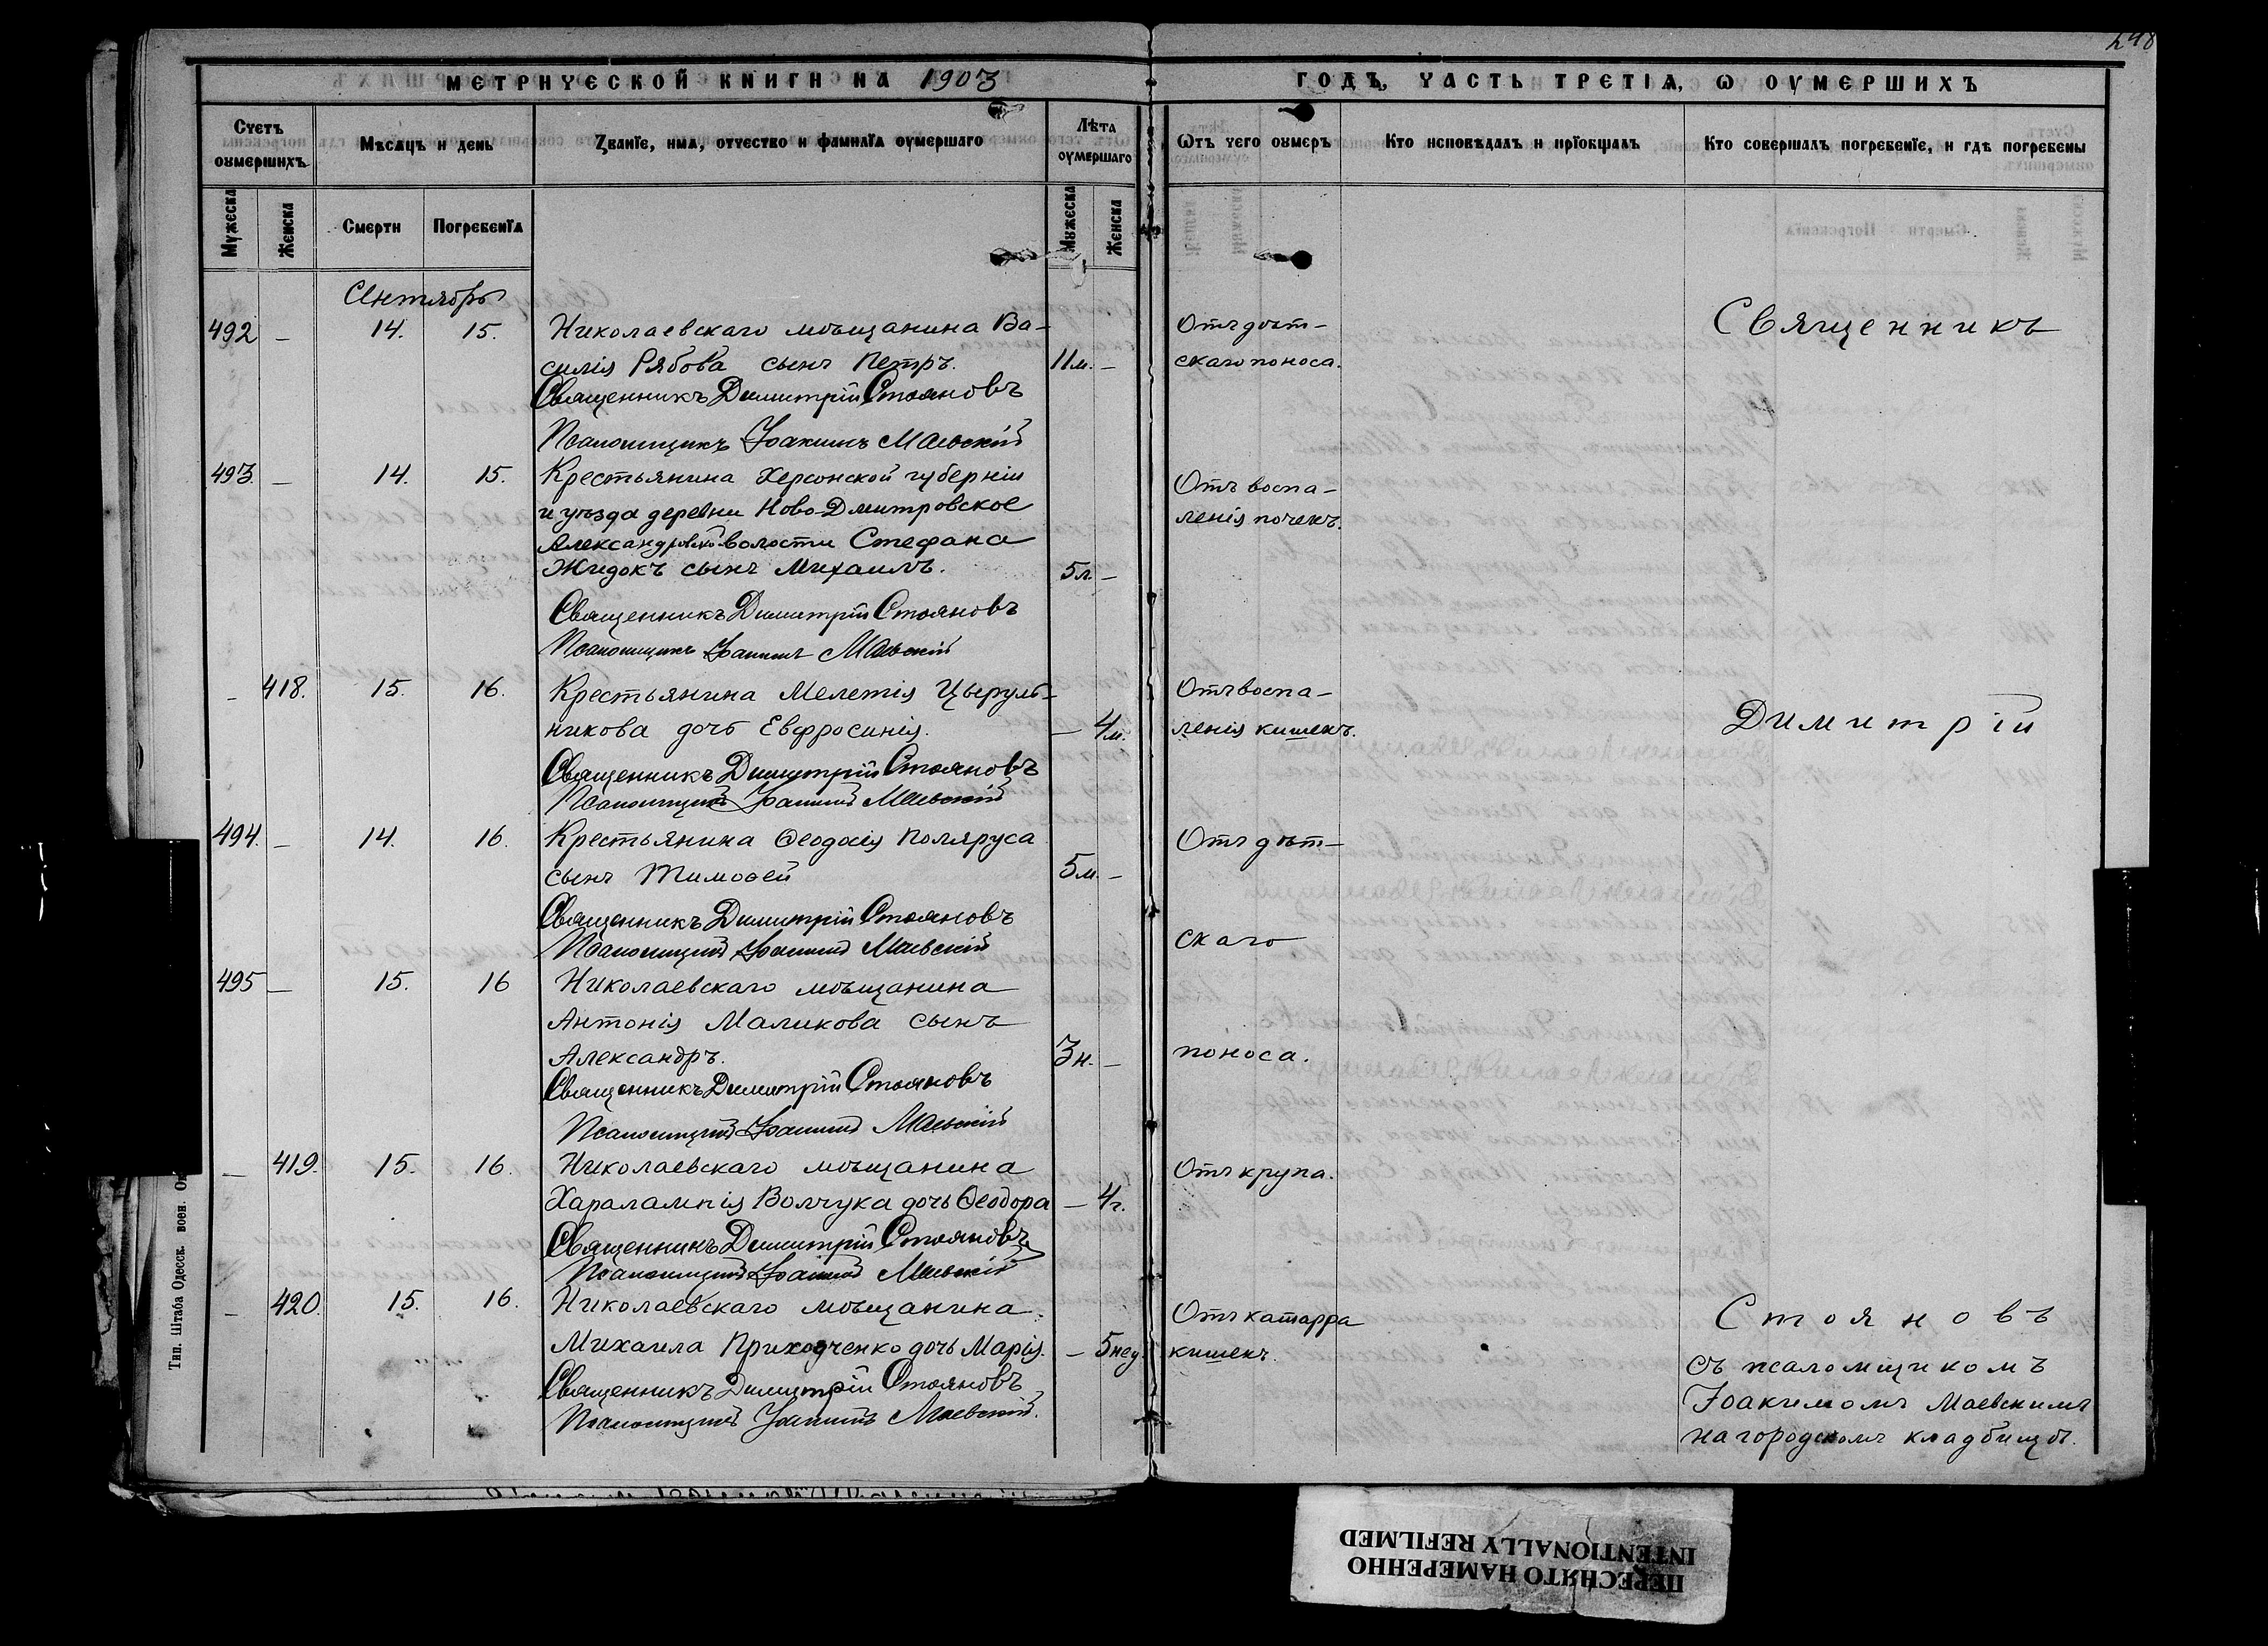 248
МЕТРИЧЕСКОЙ КНИГИ НА 1903 ГОДЪ, ЧАСТЬ ТРЕТІѦ, Ѡ ОУМЕРШИХЪ
Счетъ оумершихъ
Мѣсѧцъ и день
Званїе, имѧ, отчество и фамилїѧ оумершаго
Лѣта оумершаго
Ѿтъ чего оумеръ
Кто исповѣдалъ и прїобщалъ
Кто совершалъ погребенїе, и гдѣ погребены
Мужеска
Женска
Смерти
Погребенїѧ
Мужеска
Женска
Сентябрь
492 — 14. 15. Николаевскаго мѣщанина Ва-
силія Рябова сынъ Петръ. 11м. —
Отъ дѣт-
скаго поноса.
Священникъ Димитрій Стояновъ
Псаломщикъ Іоакимъ Маевскій
493. — 14. 15. Крестьянина Херсонской губерніи
и уѣзда деревни Ново-Дмитровское
Александровской волости Стефана
Жидокъ сынъ Михаилъ. 5л. —
Отъ воспа-
ленія почекъ.
Священникъ Димитрій Стояновъ
Псаломщикъ Іоакимъ Маевскій
— 418. 15. 16. Крестьянина Мелетія Цыруль-
никова дочь Евфросинія. — 4м.
Отъ воспа-
ленія кишекъ.
Священникъ Димитрій Стояновъ
Псаломщикъ Іоакимъ Маевскій
494. — 14. 16. Крестьянина Ѳеодосія Поляруса
сынъ Тимоѳей 5м. —
Отъ дѣт-
Священникъ Димитрій Стояновъ
Псаломщикъ Іоакимъ Маевскій
скаго
495 — 15. 16 Николаевскаго мѣщанина
Антонія Маликова сынъ
Александръ. 3н. —
поноса.
Священникъ Димитрій Стояновъ
Псаломщикъ Іоакимъ Маевскій
— 419. 15. 16. Николаевскаго мѣщанина
Харалампія Волчука дочь Ѳеодора — 4г.
Отъ крупа.
Священникъ Димитрій Стояновъ
Псаломщикъ Іоакимъ Маевскій
— 420. 15. 16. Николаевскаго мѣщанина
Михаила Приходченко дочь Марія. — 5нед.
Отъ катарра
кишекъ.
Священникъ Димитрій Стояновъ
Псаломщикъ Іоакимъ Маевскій.
Священникъ
Димитрій
Стояновъ
съ псаломщикомъ
Іоакимомъ Маевскимъ
на городскомъ кладбищѣ.
Тип. Штаба Одесск. воен.
ПЕРЕСНЯТО НАМЕРЕННО
INTENTIONALLY REFILMED